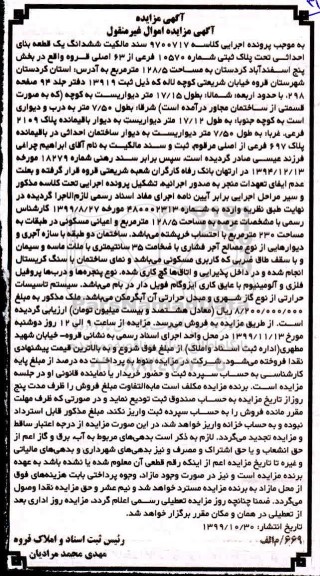 آگهی مزایده
آگهی مزایده اموال غیرمنقول
به موجب پرونده اجرایی کلاسه ۹۷۰۰۷۱۷ سند مالکیت ششدانگ یک قطعه بنای
احداثی تحت پلاک ثبتی شماره ۱۰۵۷۰ فرعی از ۶۳ اصلی قروه واقع در بخش
پنج اسفندآباد کردستان به مساحت ۱۲۸/۵ مترمربع به آدرس: استان کردستان
شهرستان قروه خیابان شریعتی کوچه لاله که ذیل ثبت ۱۳۹۱۹ دفتر جلد ۹۴ صفحه
۲۹۸، با حدود اربعه: شمالا: بطول ۱۷/۱۵ متر دیواریست به کوچه (که به صورت
قسمتی از ساختمان مجاور درآمده است) شرقا: بطول ۷/۵۰ متر به درب و دیواری
است به کوچه جنوبا: به طول ۱۷/۱۲ متر دیواریست به دیوار باقیمانده پلاک ۲۱۰۹
فرعی، غربا: به طول ۷/۵۰ متر دیواریست به دیوار ساختمان احداثی در باقیمانده
پلاک ۶۹۷ فرعی از اصلی مرقوم، ثبت و سند مالکیت به نام آقای ابراهیم چراغی
فرزند عیسی صادر گردیده است، سپس برابر سند رهنی شماره ۱۸۲۷۹ مورخه
۱۳۹۴/۱۲/۱۳ در ارتهان بانک رفاه کارگران شعبه شریعتی قروه قرار گرفته و بعلت
عدم ایفای تعهدات منجر به صدور اجرائیه، تشکیل پرونده اجرایی تحت کلاسه مذکور
و سیر مراحل اجرایی برابر آیین نامه اجرای مفاد اسناد رسمی لازم الاجرا گردیده در
نهایت طبق نظریه وارده به شماره ۴۸۰۰۰۲۳۱۳ مورخ ۱۳۹۹/۸/۲۷ کارشناس
رسمی با مشخصات عرصه به مساحت ۱۲۸/۵ مترمربع و اعیانی مسکونی در طبقات به
مساحت ۲۳۰ مترمربع با احتساب خرپشته می‌باشد. ساختمان دو طبقه با سازه آجری و
دیوارهایی از نوع مصالح آجر فشاری با ضخامت ۳۵ سانتیمتری با ملات ماسه و سیمان
و با سقف طاق ضربی که کاربری مسکونی می‌باشد و نمای ساختمان با سنگ کریستال
انجام شده و در داخل پذیرایی و اتاق‌ها گچ کاری شده. نوع پنجره‌ها و درب‌ها پروفیل
فلزی و آلومینیوم با عایق کاری ایزوگام فویل دار در بام می‌باشد. سیستم تاسیسات
حرارتی از نوع گاز شهری و مبدل حرارتی آن آبگرمکن می‌باشد. ملک مذکور به مبلغ
۸/۲۰۰/۰۰۰/۰۰۰ ریال (معادل هشتصد و بیست میلیون تومان) ارزیابی گردیده
است. از طریق مزایده به فروش می‌رسد. مزایده از ساعت ۹ الی ۱۲ روز دوشنبه
مورخ ۱۳۹۹/۱۱/۱۳ در محل واحد اجرای اسناد رسمی به نشانی قروه- خیابان شهید
مطهری(اداره ثبت اسناد و املاک)، از مبلغ فوق شروع و به بالاترین قیمت پیشنهادی
نقدا فروخته می‌شود. شرکت در مزایده منوط به پرداخت ده درصد از مبلغ پایه
کارشناسی به حساب سپرده ثبت و حضور خریدار یا نماینده قانونی او در جلسه
مزایده است. برنده مزایده مکلف است مابه‌التفاوت مبلغ فروش را ظرف مدت پنج
روز از تاریخ مزایده به حساب صندوق ثبت تودیع نماید و در صورتی که ظرف مهلت
مقرر مانده فروش را به حساب سپرده ثبت واریز نکند، مبلغ مذکور قابل استرداد
نبوده و به حساب خزانه واریز خواهد شد، در این صورت مزایده از درجه اعتبار ساقط
و مزایده تجدید می‌گردد. لازم به ذکر است بدهی‌های مربوط به آب، برق و گاز اعم از
حق انشعاب و یا حق اشتراک و مصرف و نیز بدهی‌های شهرداری و بدهی‌های مالیاتی
و غیره تا تاریخ مزایده اعم از اینکه رقم قطعی آن معلوم شده یا نشده باشد به عهده
برنده مزایده است و نیز در صورت وجود مازاد، وجوه پرداختی بابت هزینه‌های فوق
از محل مازاد به برنده مزایده مسترد خواهد شد و نیم عشر و حق مزایده نقدا وصول
می‌گردد. ضمنا چنانچه روز مزایده تعطیلی رسمی اعلام گردد، مزایده روز اداری بعد
از تعطیلی در همان و مکان مقرر برگزار خواهد شد.
تاریخ انتشار: ۱۳۹۹/۱۰/۳۰
۶۶۹/م الف
رئیس ثبت اسناد و املاک قروه
مهدی محمد مرادیان